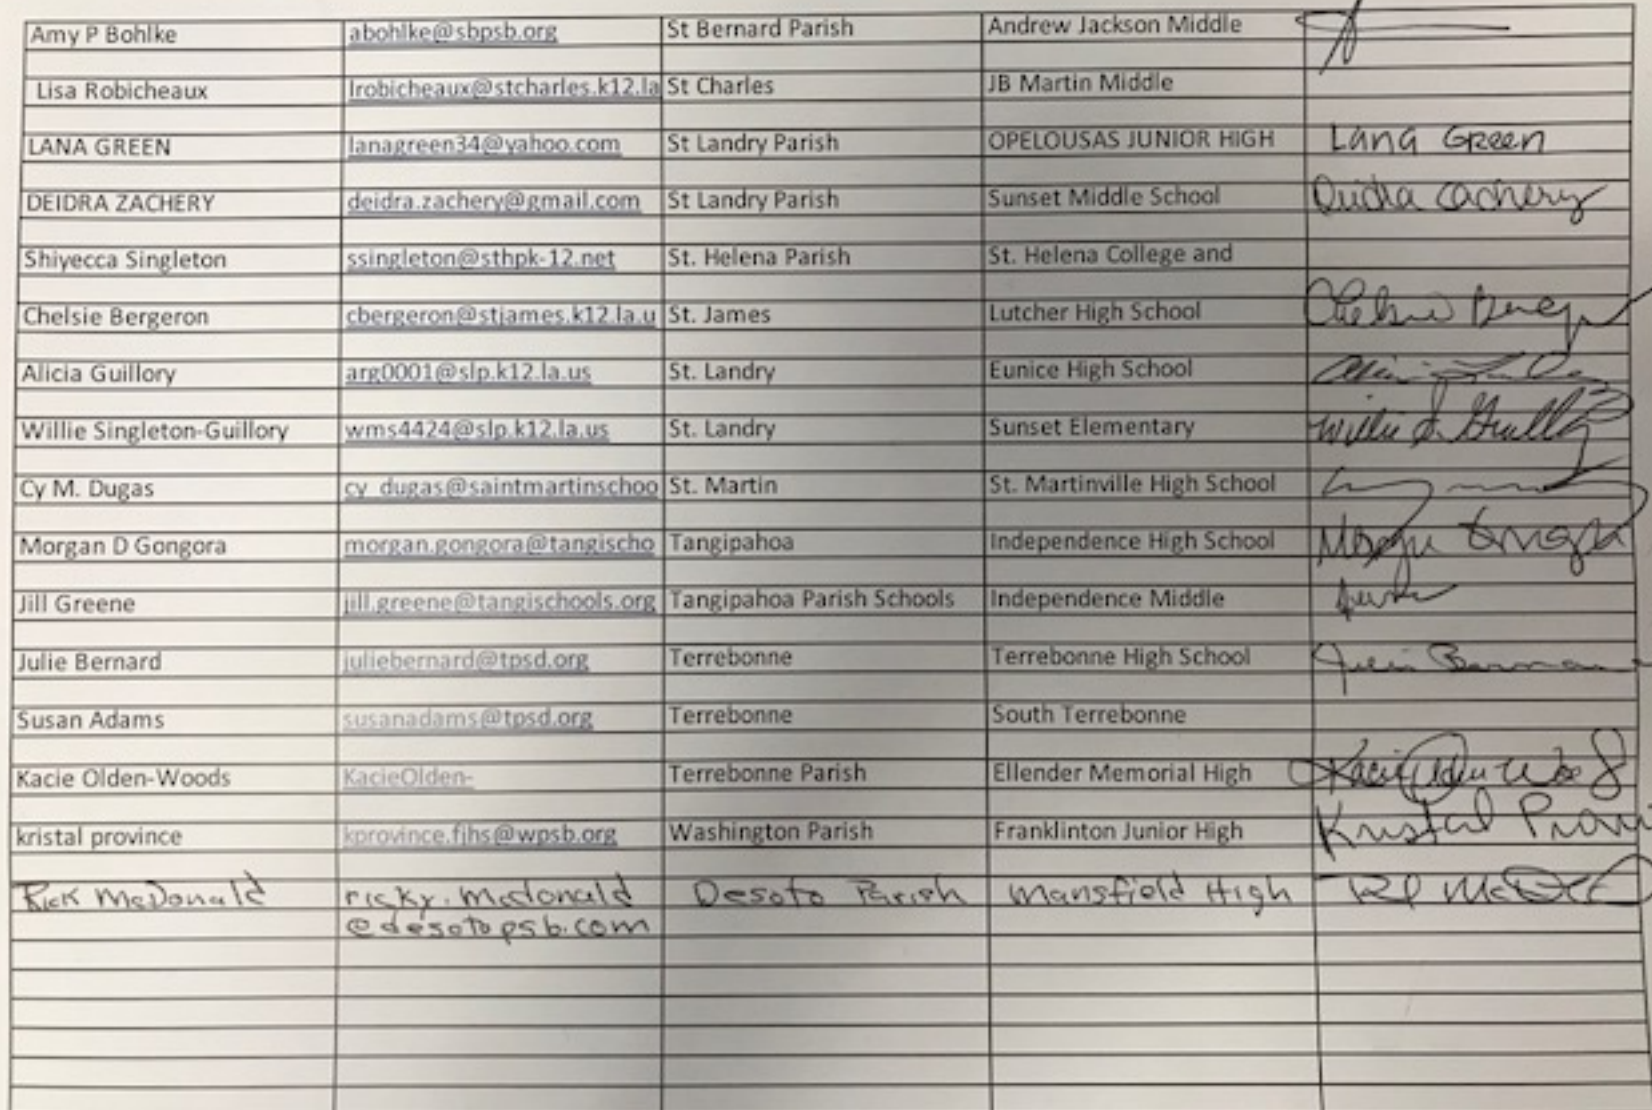 Amy P Bohlke abohlke@sbpsb.org St Bernard Parish Andrew Jackson Middle
Lisa Robicheaux lrobicheaux@stcharles.k12.la St Charles JB Martin Middle
LANA GREEN lanagreen34@yahoo.com St Landry Parish OPELOUSAS JUNIOR HIGH Lana Green
DEIDRA ZACHERY deidra.zachery@gmail.com St Landry Parish Sunset Middle School Deidra Zachery
Shiyecca Singleton ssingleton@sthpk-12.net St. Helena Parish St. Helena College and
Chelsie Bergeron cbergeron@stjames.k12.la.u St. James Lutcher High School
Alicia Guillory arg0001@slp.k12.la.us St. Landry Eunice High School
Willie Singleton-Guillory wms4424@slp.k12.la.us St. Landry Sunset Elementary Willie S. Guillory
Cy M. Dugas cy_dugas@saintmartinschoo St. Martin St. Martinville High School
Morgan D Gongora morgan.gongora@tangischo Tangipahoa Independence High School Morgan Gongora
Jill Greene jill.greene@tangischools.org Tangipahoa Parish Schools Independence Middle
Julie Bernard juliebernard@tpsd.org Terrebonne Terrebonne High School
Susan Adams susanadams@tpsd.org Terrebonne South Terrebonne
Kacie Olden-Woods KacieOlden- Terrebonne Parish Ellender Memorial High Kacie Olden Woods
kristal province kprovince.fjhs@wpsb.org Washington Parish Franklinton Junior High Kristal Provi
Rick McDonald ricky.mcdonald Desoto Parish Mansfield High
@desotopsb.com